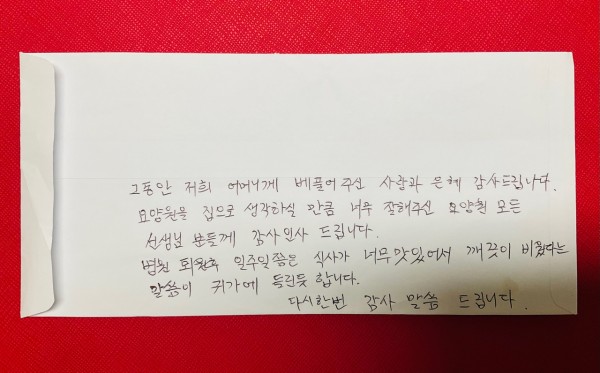 그동안 저희 어머니께 베풀어주신 사랑과 은혜 감사드립니다.
요양원을 집으로 생각하실 만큼 너무 잘해주신 요양원 모든
선생님 분들께 감사인사 드립니다.
병원 퇴원후 일주일쯤은 식사가 너무맛있어서 깨끗이 비웠다는
말씀이 귀가에 들린듯 합니다.
다시한번 감사 말씀 드립니다.